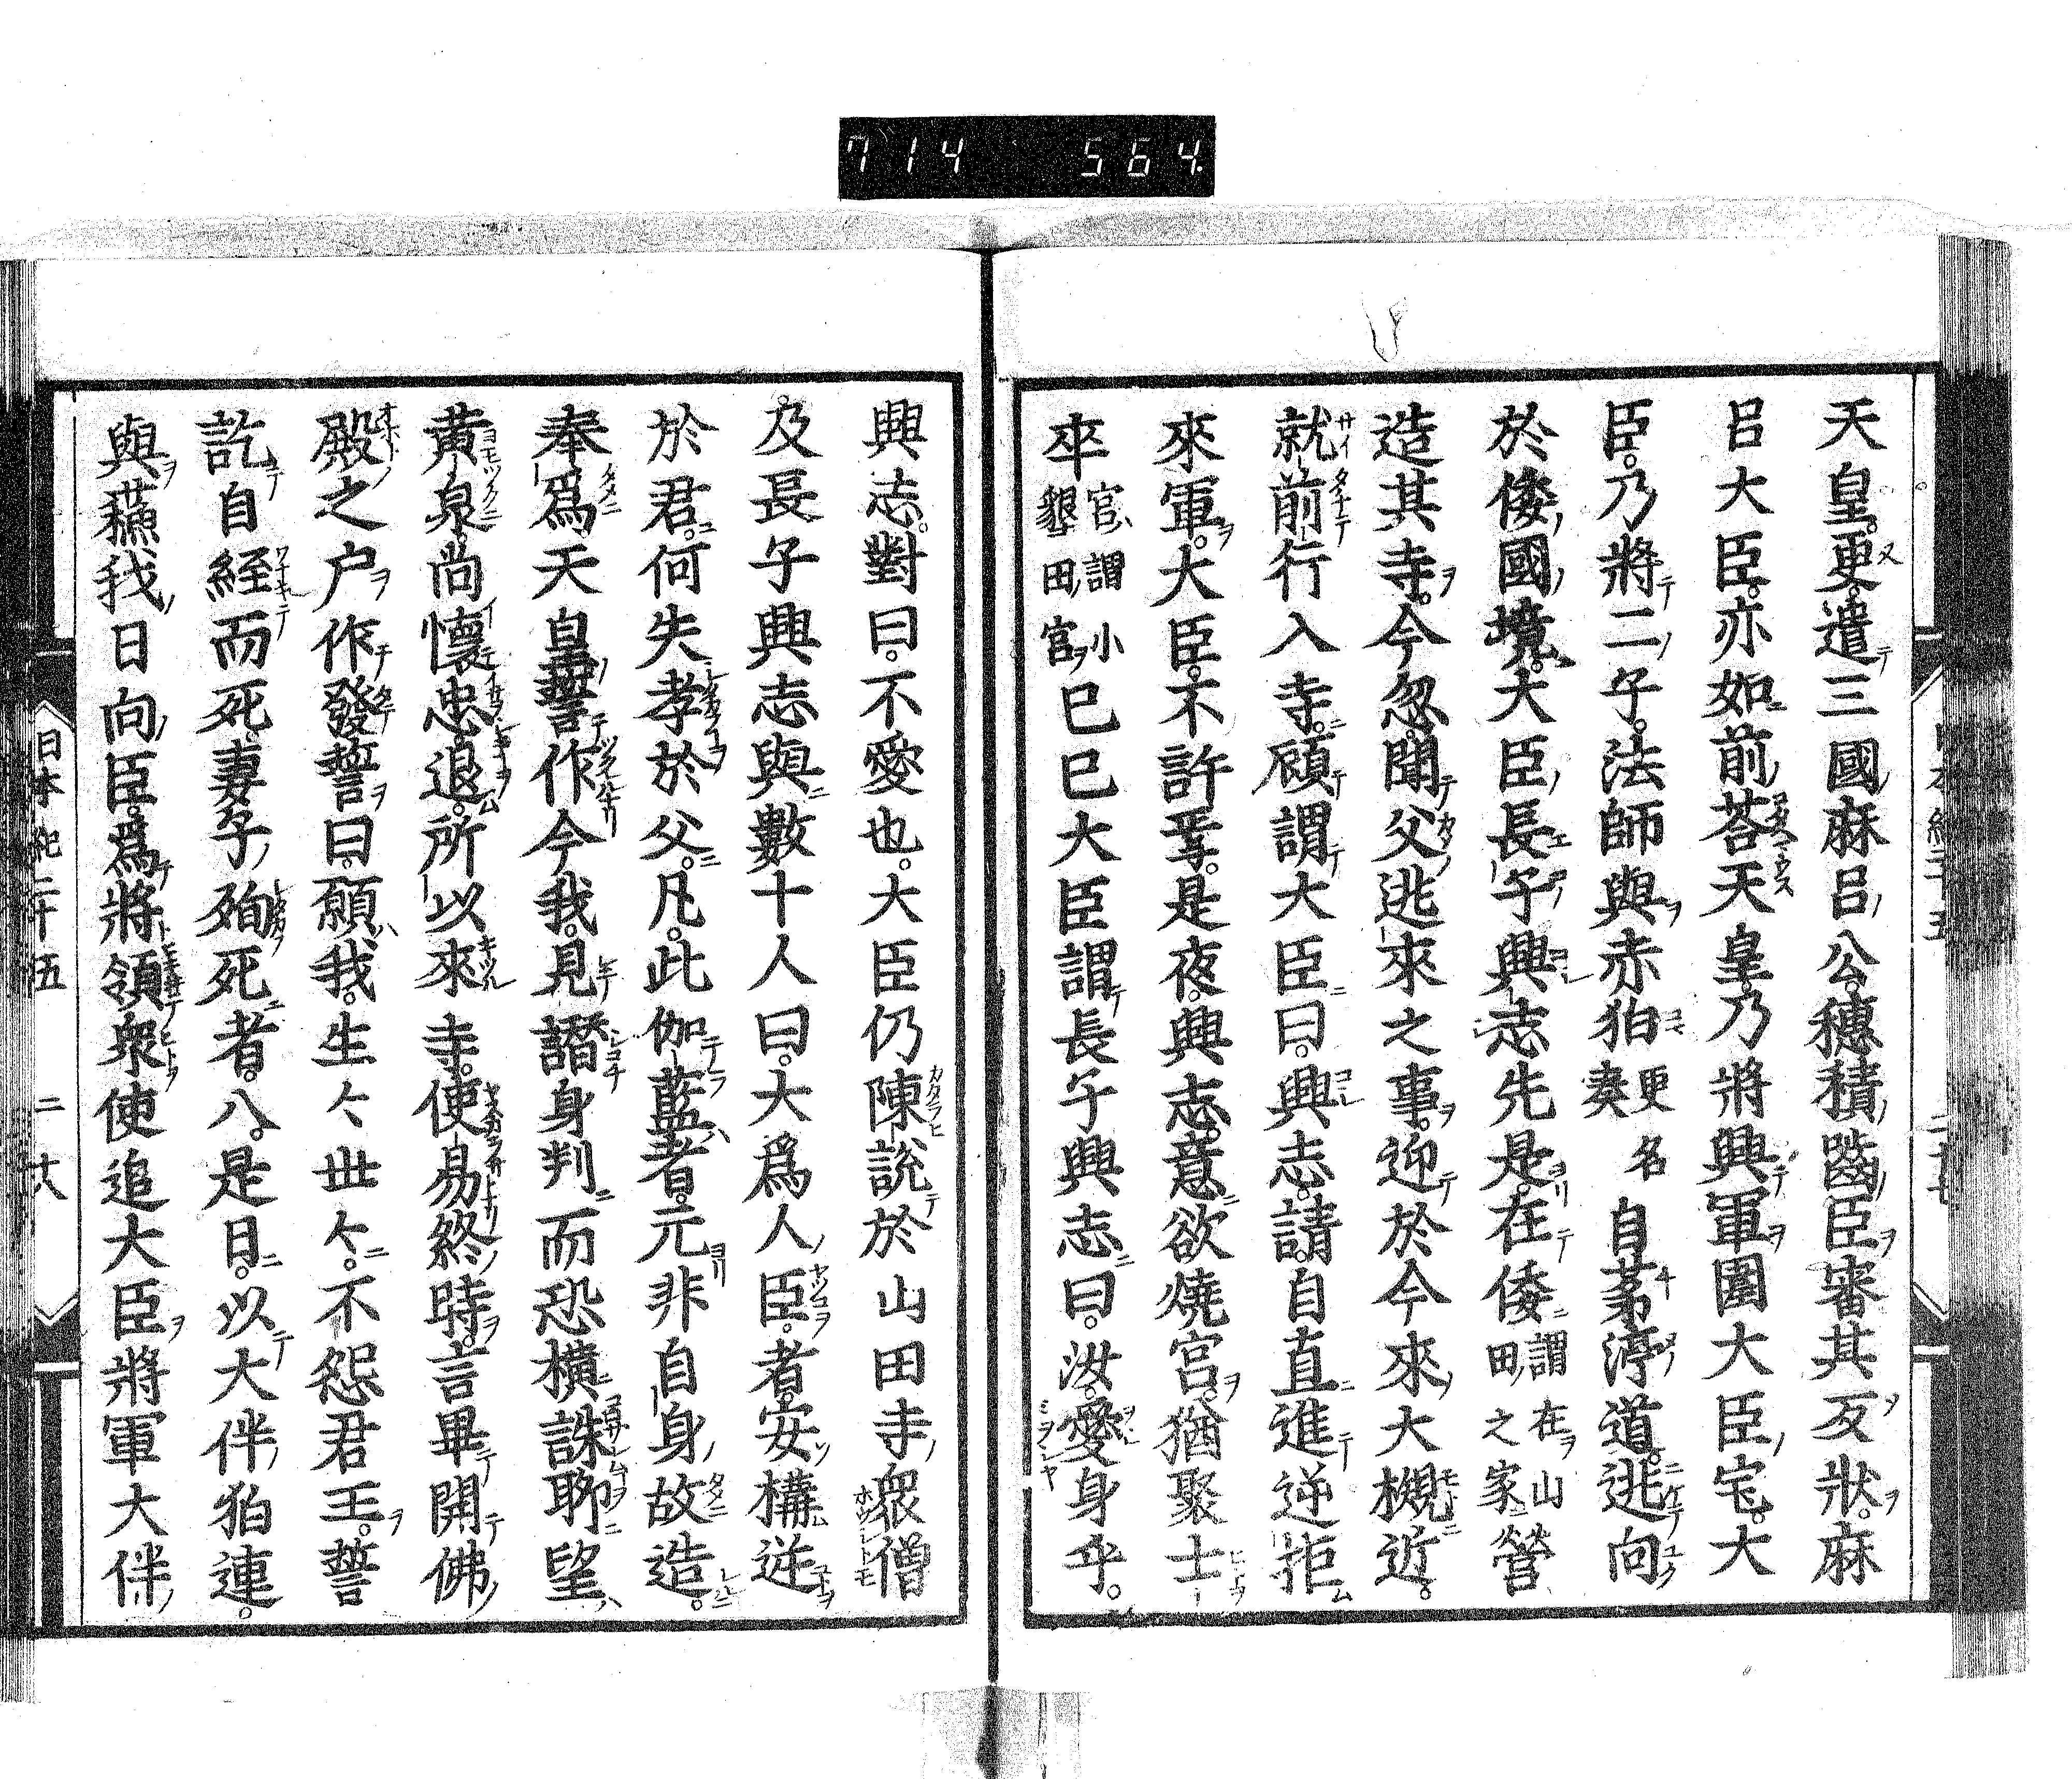 714 564.
天皇。更遣三國麻呂公。穗積嚙臣審其反狀。麻
呂大臣。亦如前荅天皇。乃將興軍圍大臣宅。大
臣。乃將二子。法師與赤狛更名秦自茅渟道。逃向
於倭國境。大臣長子興志先是。在倭謂在山田之家營
造其寺。今忽聞父逃來之事。迎於今來大槻近。
就前行入寺。顧謂大臣曰。興志。請。自直進逆拒
來軍。大臣。不許焉。是夜。興志。意欲燒宮。猶聚士
卒官謂小墾田宮己巳大臣謂長子興志曰。汝。愛身乎。
興志。對曰。不愛也。大臣仍陳說於山田寺衆僧
及長子興志與數十人曰。大爲人臣。者。安構逆
於君。何失孝於父。凡。此伽藍者。元非自身故造。
奉爲。天皇誓作今我。見譖身判而恐橫誅聊望
黃泉。尚懷忠退。所以來寺。使易終時。言畢開佛
殿之户作發誓曰。願我。生々世々。不怨君王。誓
訖自經而死。妻子殉死者。八。是日。以大伴狛連。
與蘓我日向臣。爲將領衆使追大臣將軍大伴
日本紀二十五 二十八